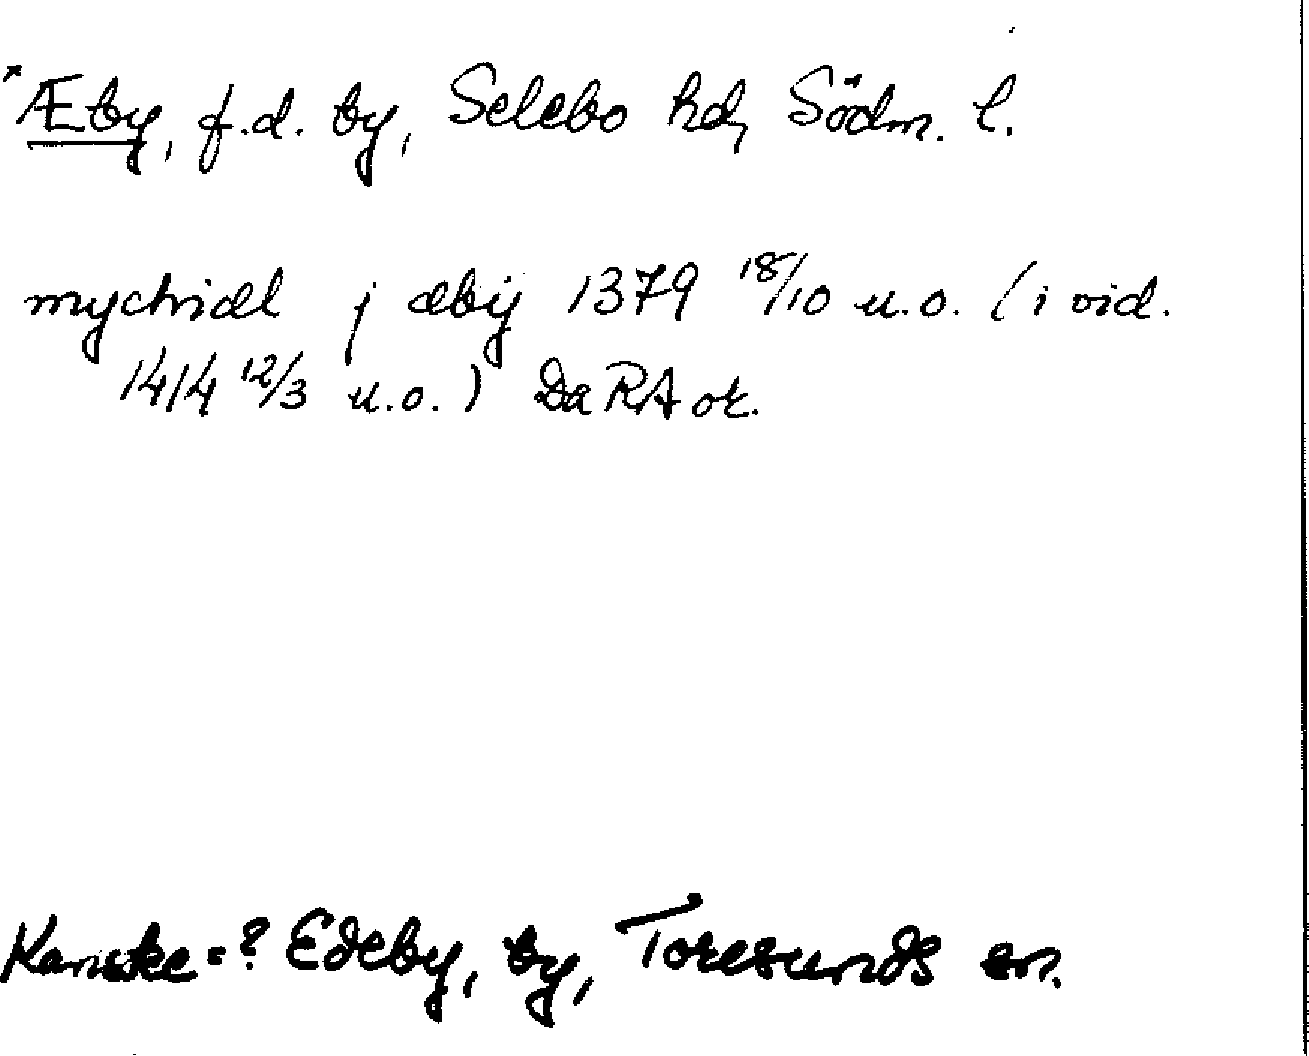 *Æby, f.d. by, Selebo hd, Södm. l.
mychiæl j æbÿ 1379 18/10 u.o. (i vid.
1414 12/3 u.o.) Da RA or.
Kanske =? Edeby, by, Toresunds sn.